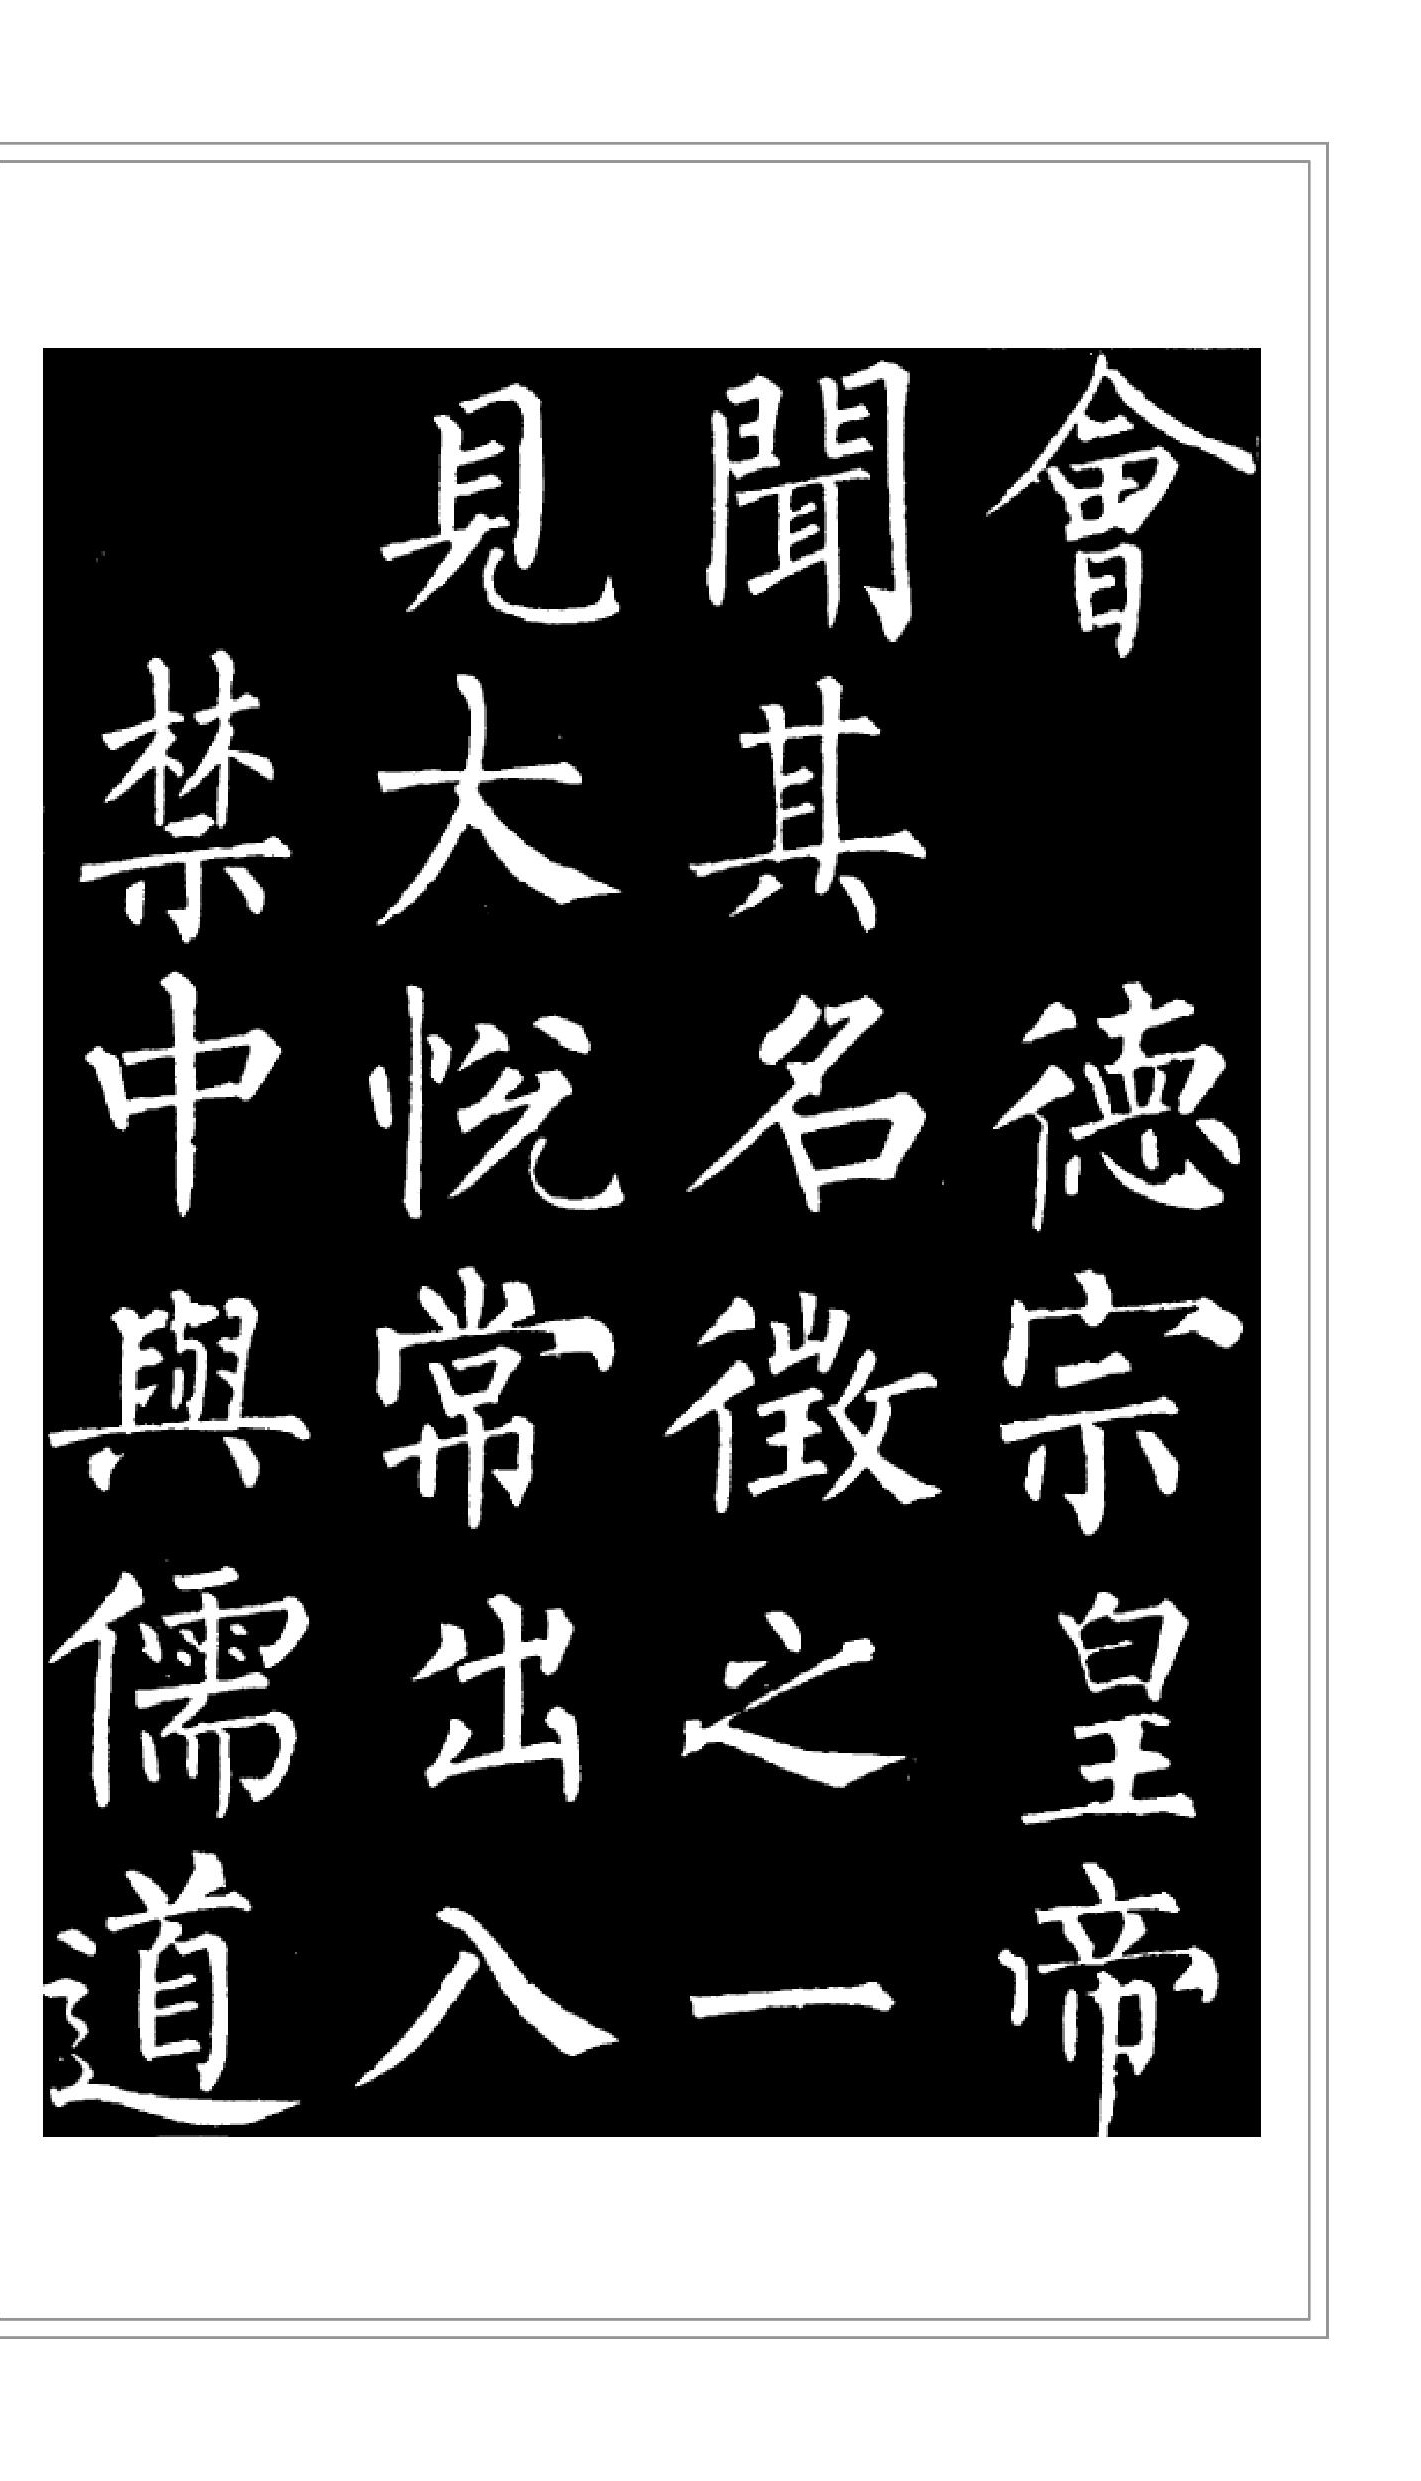 會德宗皇帝
聞其名徵之一
見大悅常出入
禁中與儒道